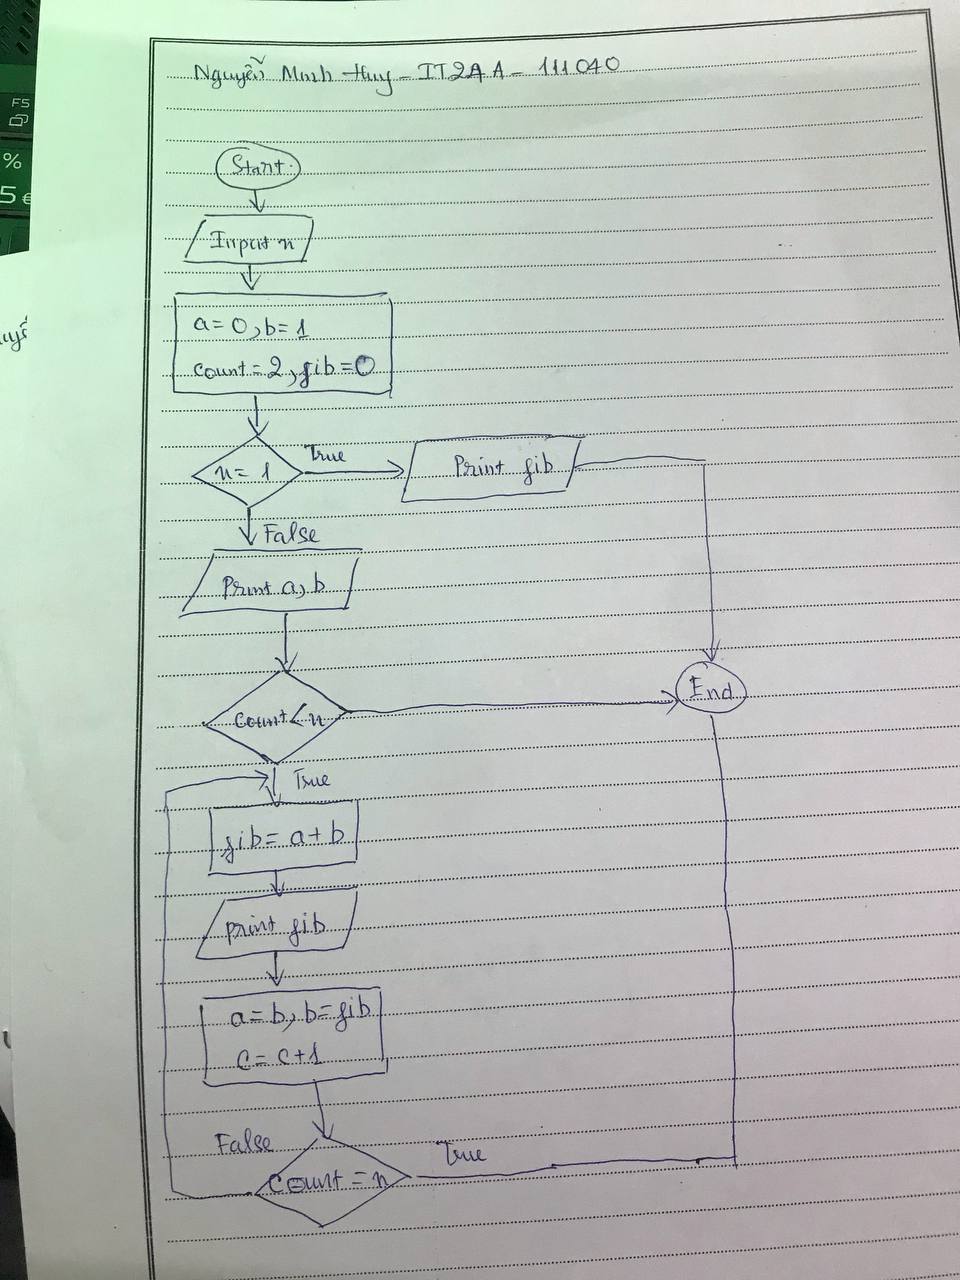 Nguyễn Minh Huy - IT2AA - 111040
F5
%
5 €
Start
Input n
a = 0, b = 1
count = 2, fib = 0
n = 1
True
Print fib
False
Print a, b
count < n
End
True
fib = a + b
print fib
a = b, b = fib
c = c + 1
False
True
count = n